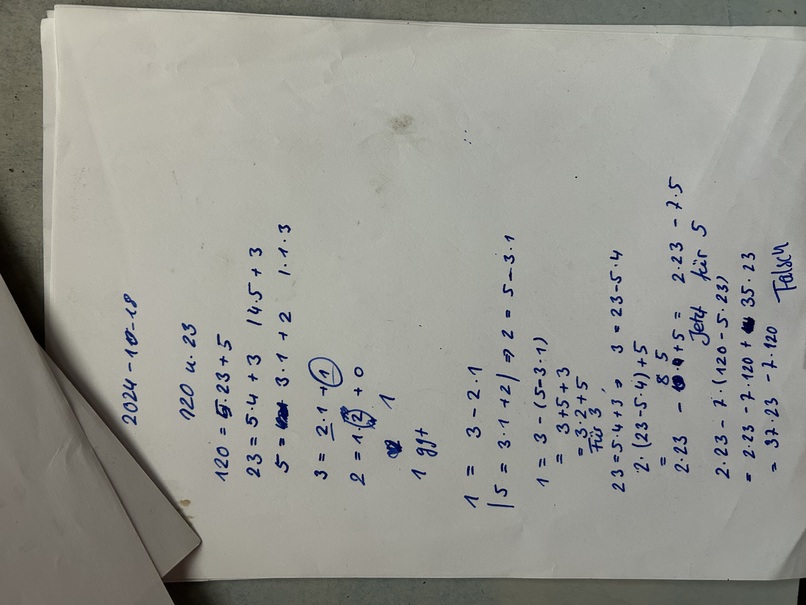 2024-10-18
120 u. 23
120 = 5·23+5
23 = 5·4 + 3 | 4·5 + 3
5 = 3·1 + 2 1·1·3
3 = 2·1 + 1
2 = 1·2 + 0
1
1 ggt
1 = 3 - 2·1
|5 = 3·1 +2| => 2 = 5-3·1
1 = 3 - (5-3·1)
= 3+5+3
= 3·2+5
Für 3,
23=5·4+3 => 3 = 23-5·4
2·(23-5·4)+5
= 8 5
2·23 - +5 = 2·23 - 7·5
Jetzt für 5
2·23 - 7·(120 - 5·23)
= 2·23 - 7·120 + 35·23
= 37·23 - 7·120
Falsch